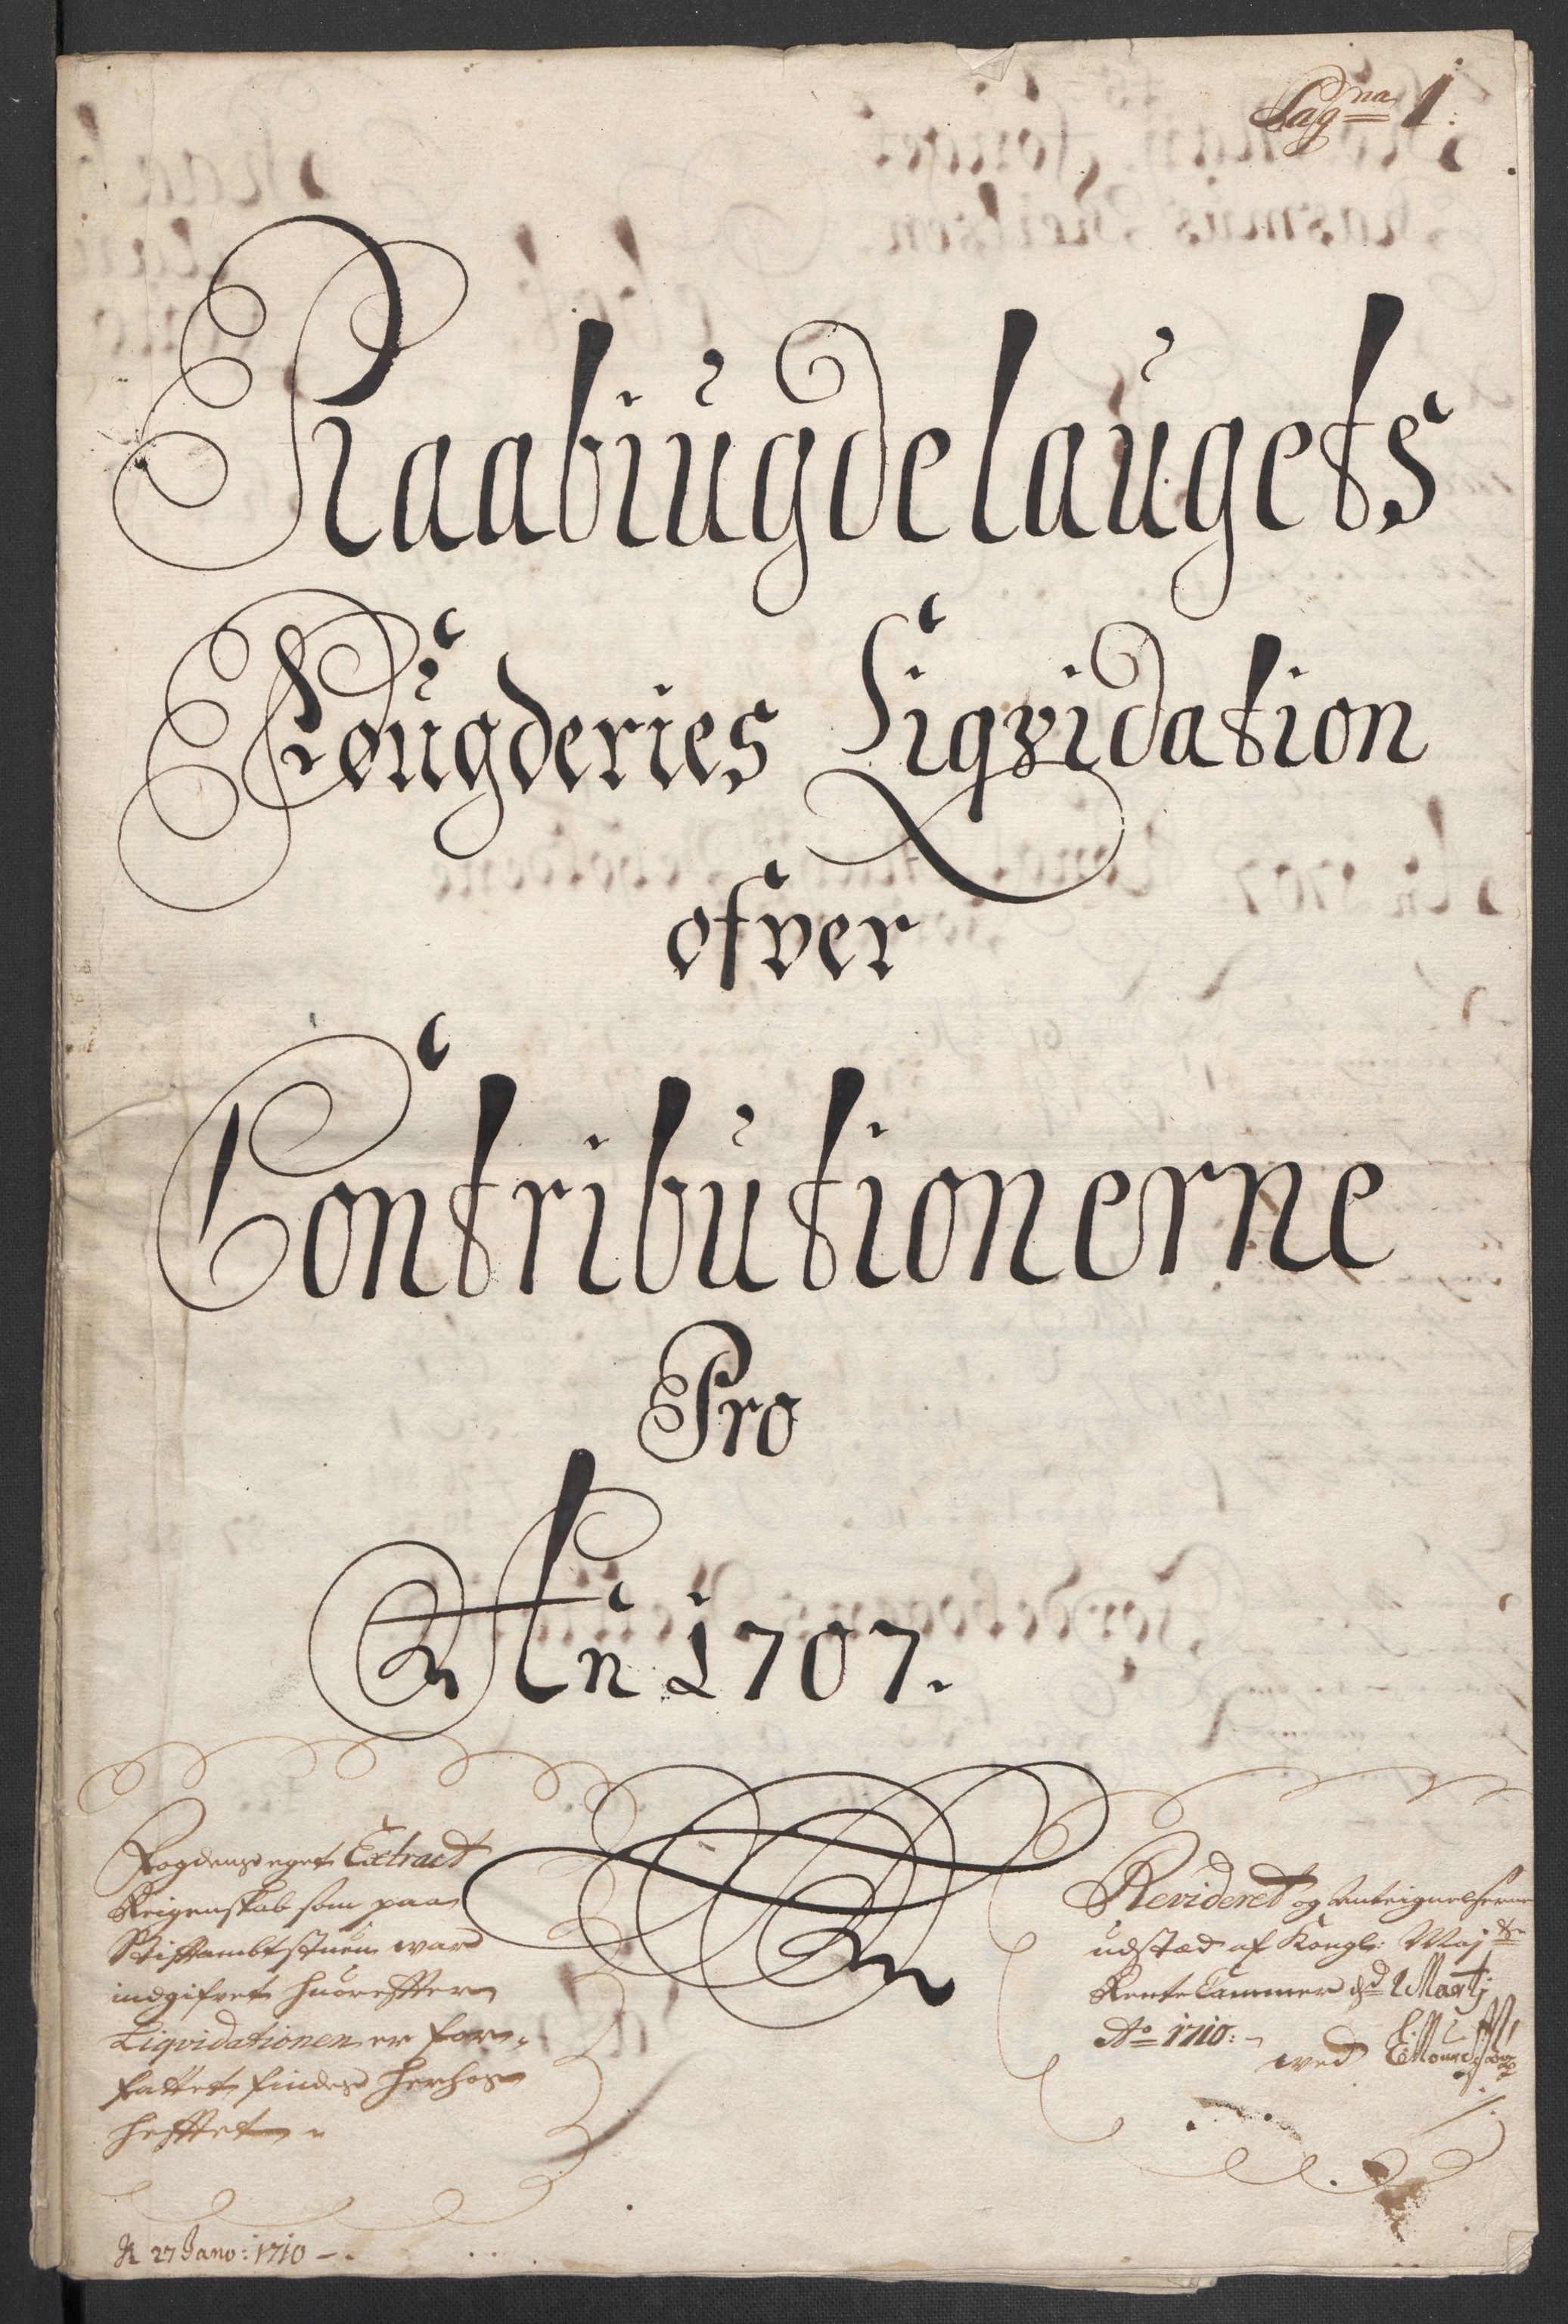 Pagna 1.
Raabiugdelaugets
Fougderies Liqvidation
ofver
Contributionerne
Pro
An 1707.
Fogdens eget Extract
Reigenskab som paa
Stiftambtstuen ward
indgifvet huorefter
Liqvidationen er for-
fattet findes herhos
hefftet
Revideret og Anteignelserne
udstæd af Kongl: Maj ts
Rente Cammer d 1 Martj
Ao 1710:
wed
R 27 Jano: 1710 -